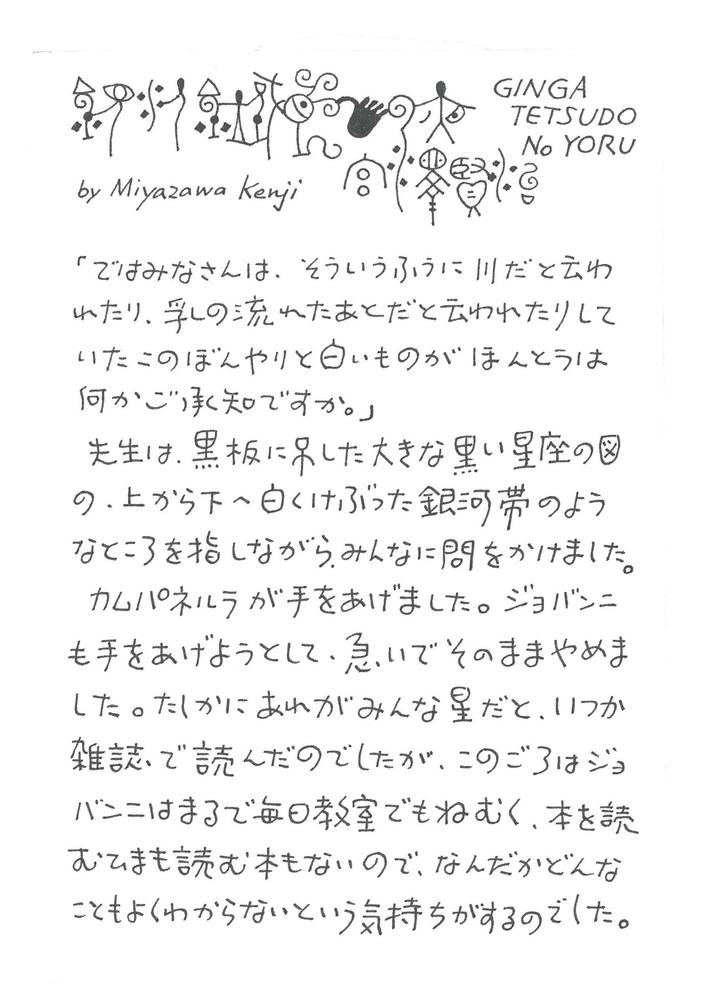 GINGA
TETSUDO
No YORU
by Miyazawa Kenji
「ではみなさんは、そういうふうに川だと云わ
れたり、乳の流れたあとだと云われたりして
いたこのぼんやりと白いものがほんとうは
何かご承知ですか。」
先生は、黒板に吊した大きな黒い星座の図
の、上から下へ白くけぶった銀河帯のよう
なところを指しながら、みんなに問をかけました。
カムパネルラが手をあげました。ジョバンニ
も手をあげようとして、急いでそのままやめま
した。たしかにあれがみんな星だと、いつか
雑誌で読んだのでしたが、このごろはジョ
バンニはまるで毎日教室でもねむく、本を読
むひまも読む本もないので、なんだかどんな
こともよくわからないという気持ちがするのでした。